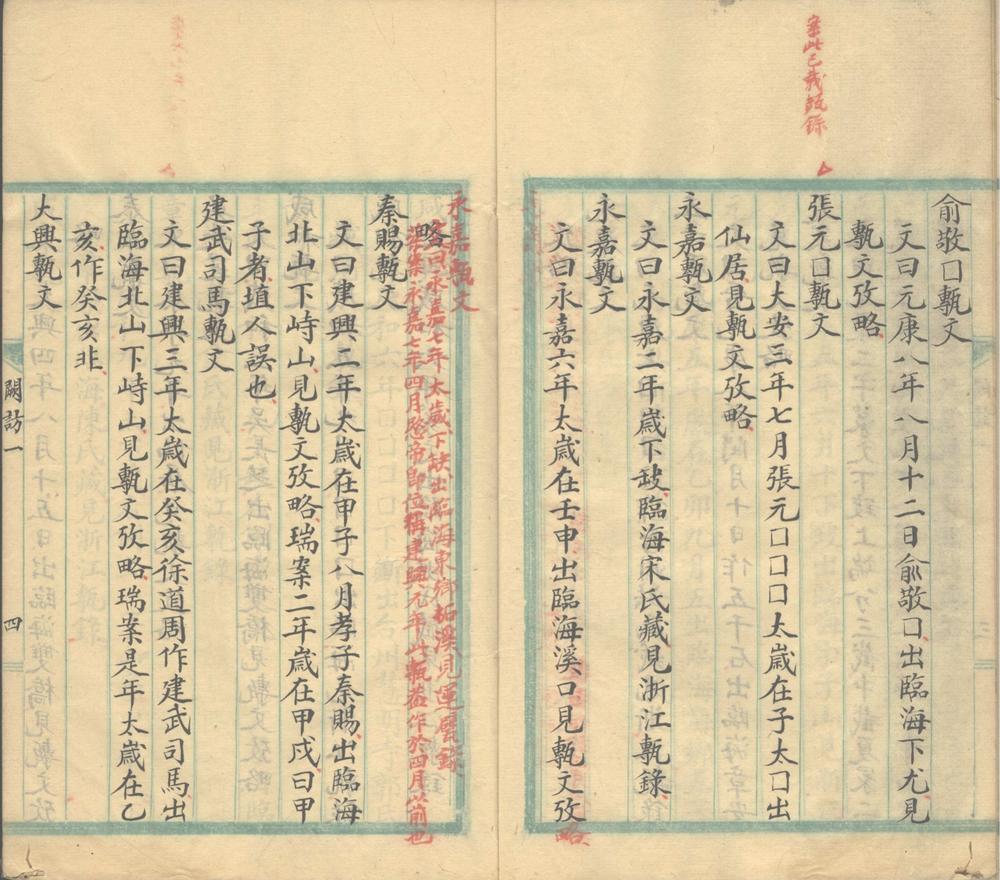 案此已載甎錄
俞敬□甎文
文曰元康八年八月十二日俞敬□出臨海下尤見
甎文攷略
張元□甎文
文曰大安三年七月張元□□□太歲在子太□出
仙居見甎文攷略
永嘉甎文
文曰永嘉二年歲下缺臨海宋氏藏見浙江甎錄
永嘉甎文
文曰永嘉六年太歲在壬申出臨海溪口見甎文攷
略
永嘉甎文
文曰永嘉七年太歲下缺出臨海東鄉柘溪見運甓錄
案永嘉七年四月愍帝即位稱建興元年此甎蓋作於四月以前也
略
秦賜甎文
文曰建興二年太歲在甲子八月孝子秦賜出臨海
北山下峙山見甎文攷略瑞案二年歲在甲戌曰甲
子者埴人誤也
建武司馬甎文
文曰建興三年太歲在癸亥徐道周作建武司馬出
臨海北山下峙山見甎文攷略瑞案是年太歲在乙
亥作癸亥非
大興甎文
闕訪一
四